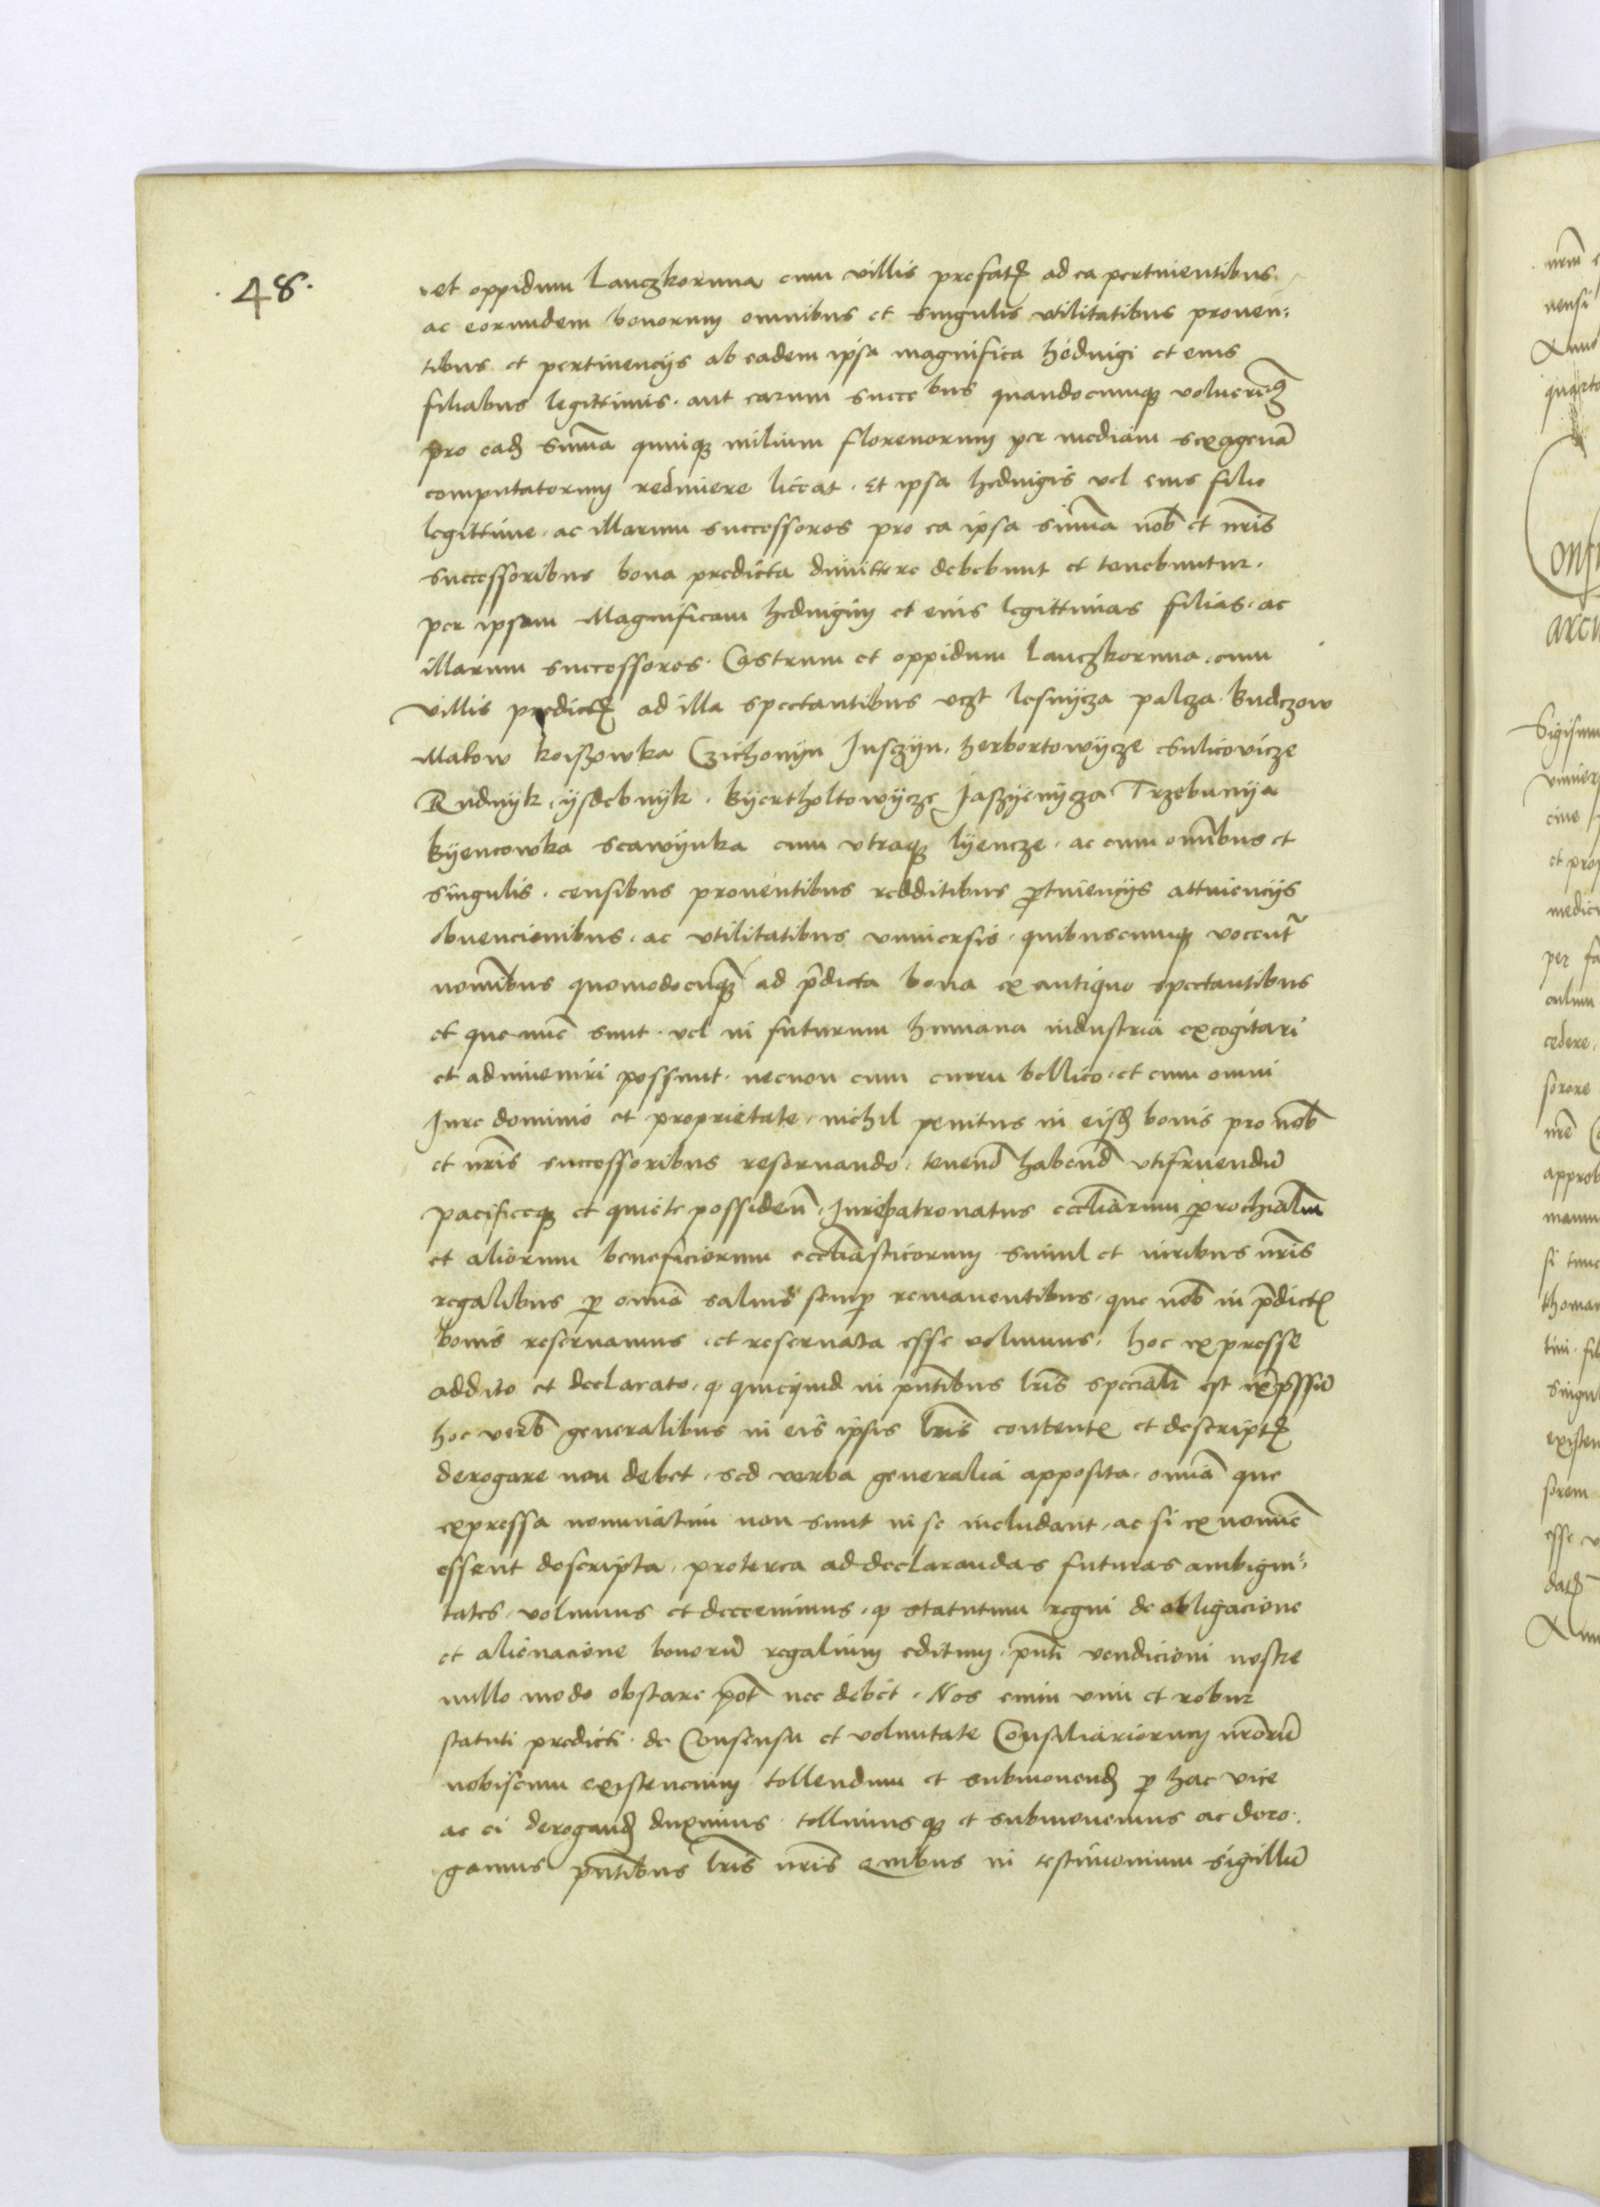 · 48 ·
et oppidum Lanczkoruna cum villis prefatis ad ea pertinentibus
ac eorundem bonorum omnibus et singulis vtilitatibus prouen:
tibus et pertinencijs ab eadem ipsa magnifica heduigi et eius
filiabus legittimis · aut earum succebus quandocumque voluerimus
pro ead summa quinque milium florenorum per mediam sexagenā
computatorum redimere liceat · Et ipsa heduigis vel eius filie
legittime · ac illarum successores pro ea ipsa summa nob et nris
successoribus bona predicta dimittere debebunt et tenebuntur ·
per ipsam Magnificam heduigim et eius legittimas filias · ac
illarum successores · Castrum et oppidum Lanczkoruna · cum
villis predictis ad illa spectantibus vczt lesnycza palcza · Budczow
Makow koiszowka Czichonyn Jusczyn · herbortowycze Sulicovicze
Rudnyk · ysdebnyk · Byertholtowycze Jaszyenycza Trzebunya
Byencowka scawynka cum vtraque lyencze · ac cum omnibus et
singulis · censibus prouentibus redditibus ptinencijs attinencijs
obuencionibus · ac vtilitatibus vniuersis · quibuscumque vocent
nominibus quomodocunque ad pdicta bona ex antiquo spectantibus
et que nunc sunt · vel in futurum humana industria excogitari
et adinueniri possunt · necnon cum curru bellico · et cum omni
Jure dominio et proprietate · nichil penitus in eisd bonis pro nob
et nris successoribus reseruando · tenend habend vtifruendū
pacificeque et quiete possidend · Jurepatronatus eccliarum prochialiū
et aliorum beneficiorum eccliasticorum simul et iuribus nris
regalibus p omnia saluis semp remanentibus · que nob in pdictis
bonis reseruamus · et reseruata esse volumus · hoc expresse
addito et declarato · q quicquid in pntibus lris specialr est expssum
hoc verb generalibus in eis ipsis lris contentis et descriptis
derogare non debet · sed verba generalia apposita · omnia que
expressa nominatim non sunt in se includant · ac si ex nomine
essent descripta · preterea ad declarandas futuras ambigui:
tates · volumus et decernimus · q statutum regni de obligacione
et alienacione bonorū regalium editum · pnti vendicioni nostre
nullo modo obstare pot nec debet · Nos enim vim et robur
statuti predicti · de Consensu et voluntate Consiliariorum nrorū
nobiscum existencium tollendum et submouend p hac vice
ac ei derogand duximus · tollimusque et submouemus ac dero:
gamus pntibus lris nris Quibus in testimonium sigillū